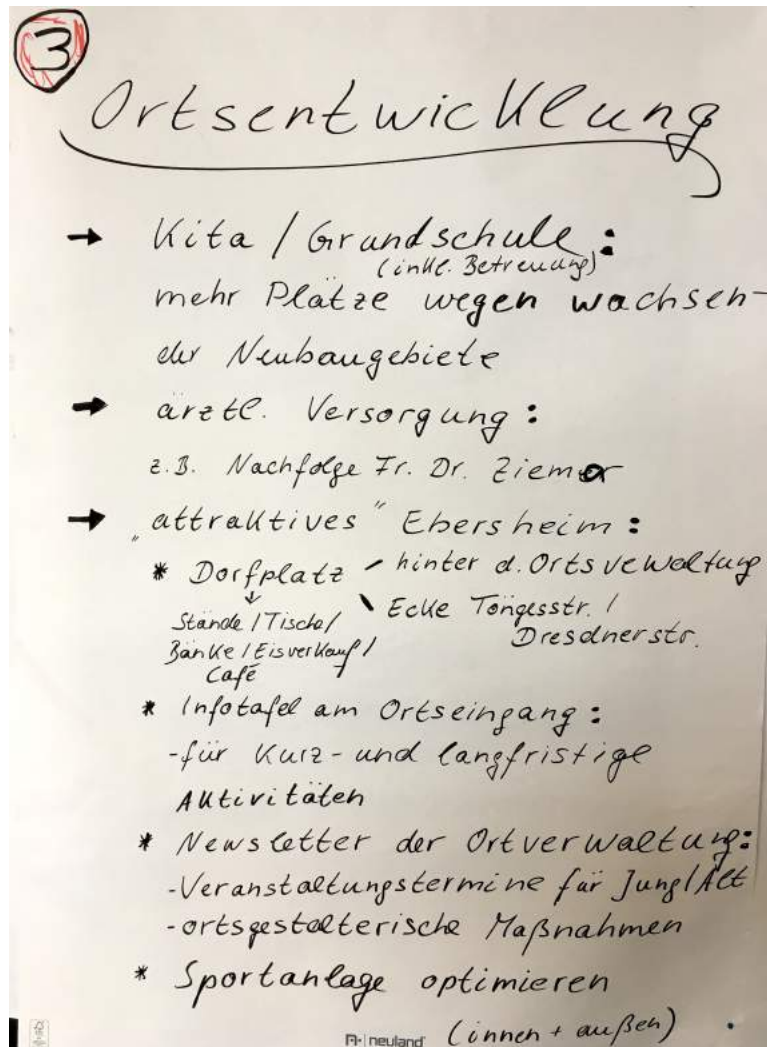 3
Ortsentwicklung
→ Kita / Grundschule:
(inkl. Betreuung)
mehr Plätze wegen wachsen-
der Neubaugebiete
→ ärztl. Versorgung:
z.B. Nachfolge Fr. Dr. Ziemer
→ "attraktives" Ebersheim:
* Dorfplatz - hinter d. Ortsvewaltung
↓ \ Ecke Töngesstr. /
Stände / Tische / Dresdnerstr.
Bänke / Eisverkauf /
Café
* Infotafel am Ortseingang:
- für Kurz- und langfristige
Aktivitäten
* Newsletter der Ortverwaltung:
- Veranstaltungstermine für Jung/Alt
- ortsgestalterische Maßnahmen
* Sportanlage optimieren
(innen + außen)
neuland